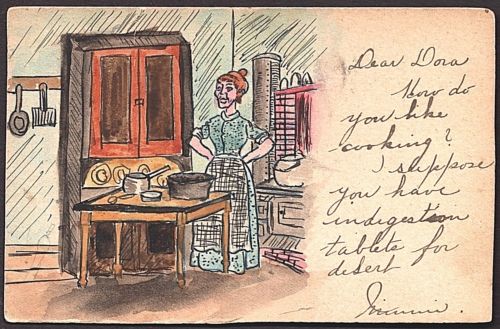 Dear Dora
How do
you like
cooking?
I suppose
you have
indigestion
tablets for
desert
Minnie.